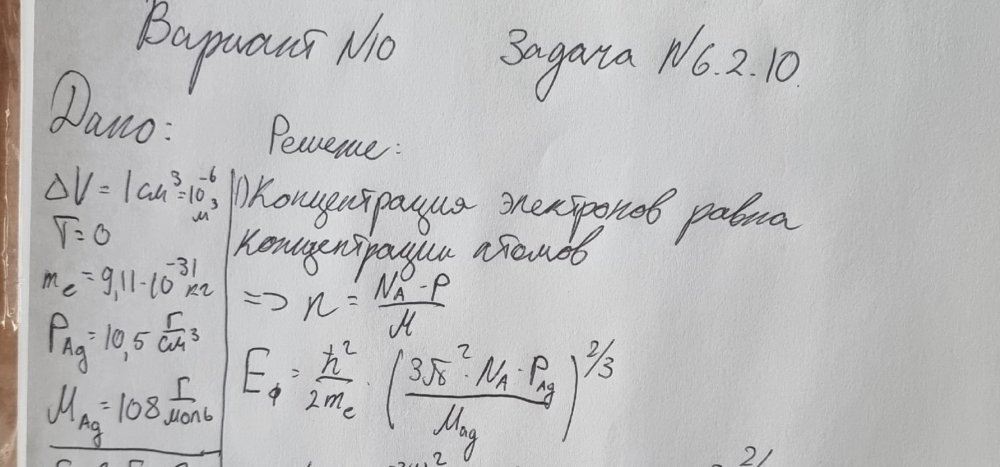 Вариант N10
Задача N6.2.10.
Дано:
ΔV = 1 см³ = 10⁻⁶ м³
T = 0
mₑ = 9,11·10⁻³¹ кг
ρ_Ag = 10,5 г/см³
M_Ag = 108 г/моль
Решение:
1) Концентрация электронов равна
концентрации атомов
=> n = (N_A · ρ) / M
E_ф = ħ²/2mₑ · (3π² · N_A · ρ_Ag / M_ag)^2/3